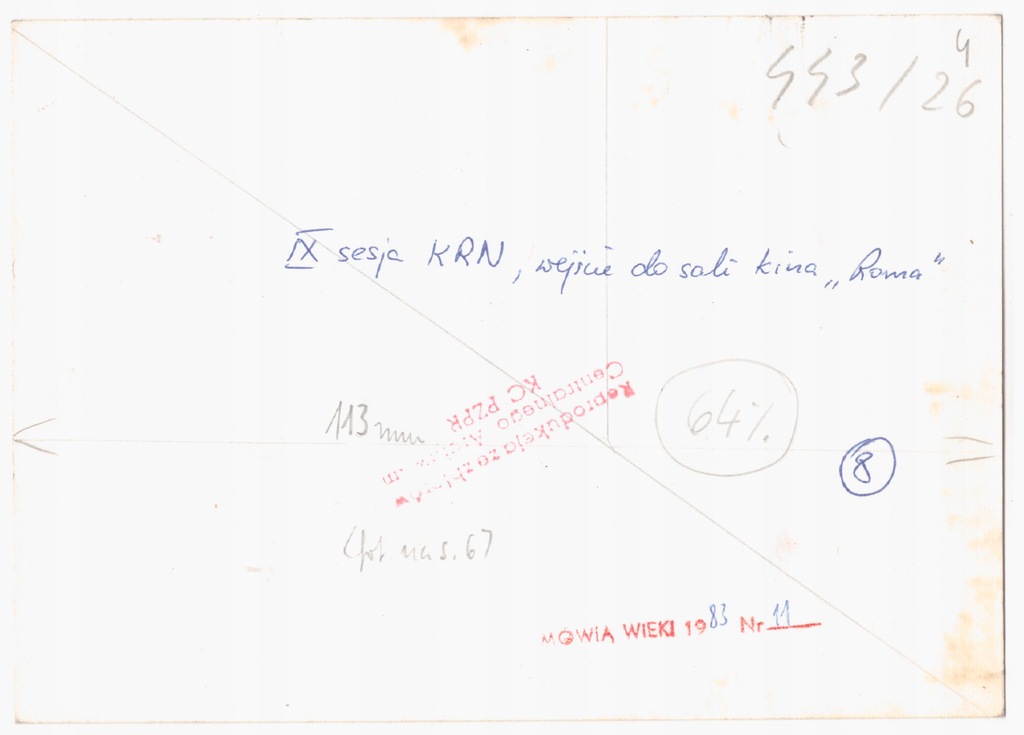 4
443/26
IX sesja KRN, wejście do sali kina „Roma"
Reprodukcja ze zbiorów
Centralnego Archiwum
KC PZPR
113 mm
64%
8
fot na s. 67
MÓWIĄ WIEKI 1983 Nr 11